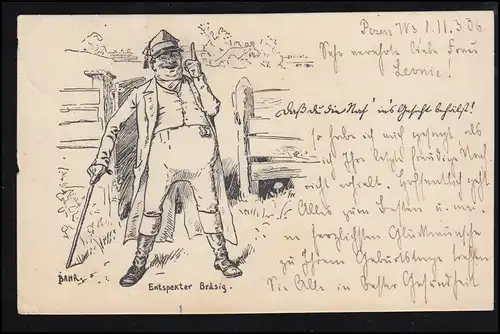 1.11.3.06.
Sehr verehrte liebe Frau
Leonie!
Daß du die Nas' in's Gesicht behälst!
so habe ich mich gesagt als
ich Ihre letzte freudige Nach
nicht erhielt. Hoffentlich geht
Alles zum Besten u.
herzlichsten Glückwünsche
zu Ihrem Geburtstage
Sie Alle in bester Gesundheit
BAHR.
Entspekter Bräsig.